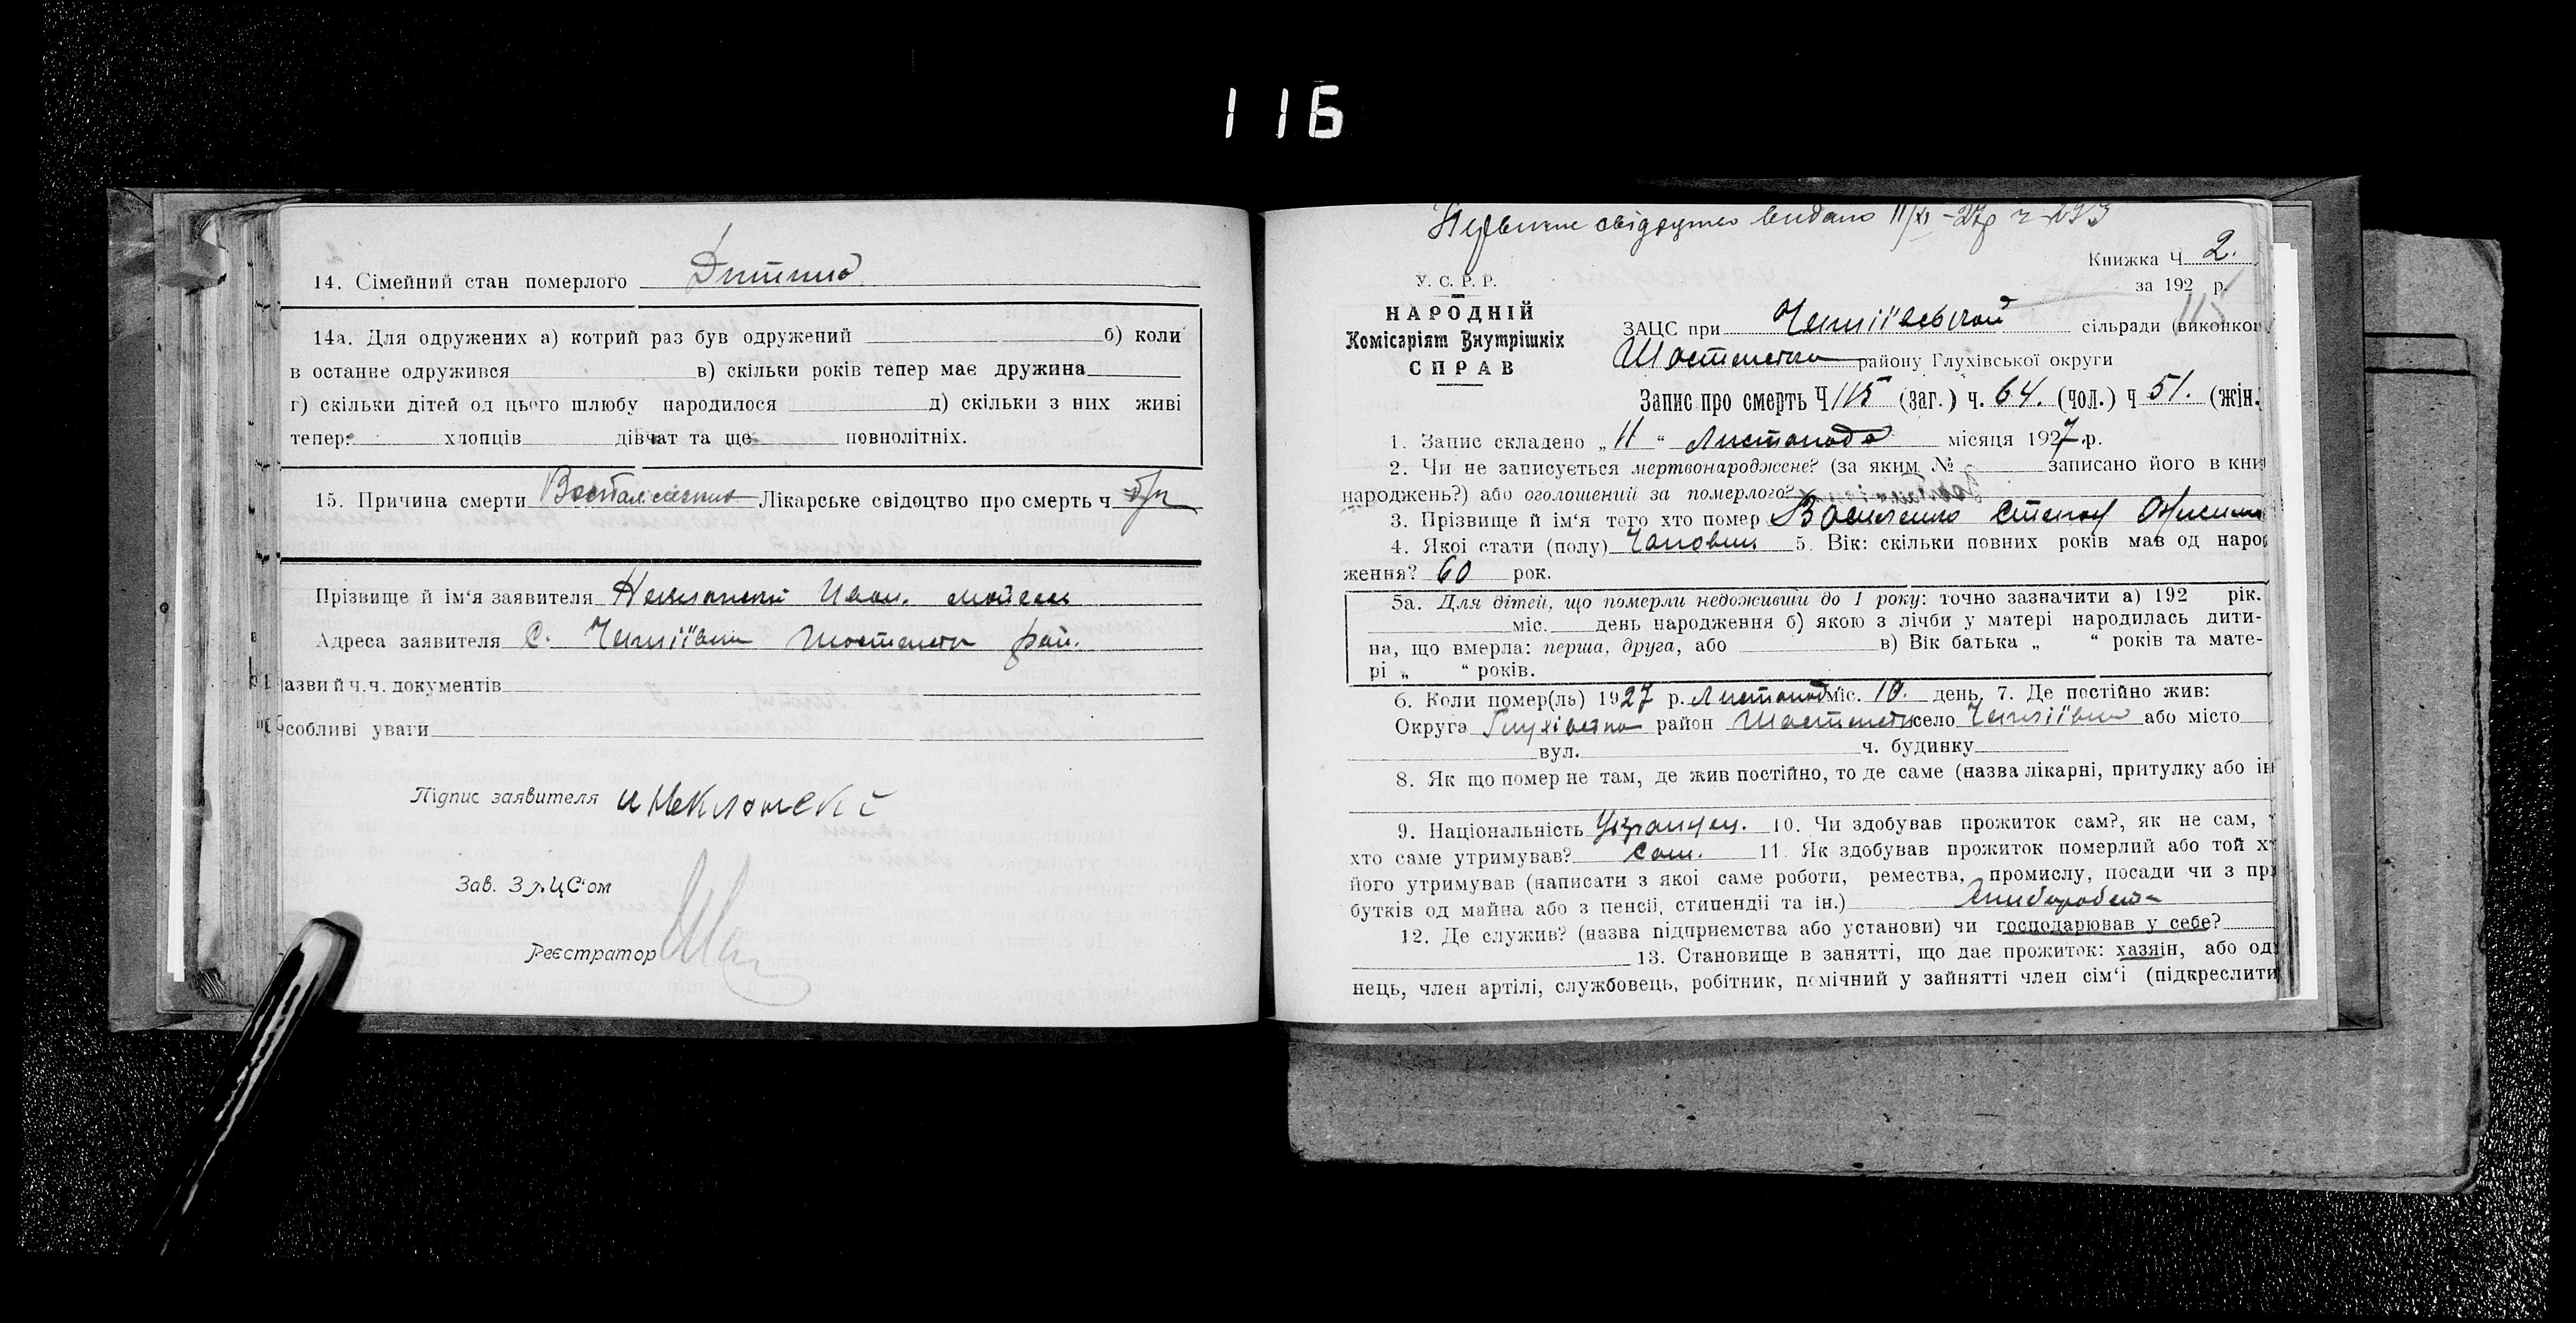 116
14. Сімейний стан померлого Дитина
14а. Для одружених а) котрий раз був одружений б) коли
в останнє одружився в) скільки років тепер має дружина
г) скільки дітей од цього шлюбу народилося д) скільки з них живі
тепер: хлопців дівчат та ще повнолітніх.
15. Причина смерти Лікарське свідоцтво про смерть ч
Прізвище й ім‘я заявителя Иван.
Адреса заявителя С. Чепліївка рай.
азви й ч.ч. документів
собливі уваги
Підпис заявителя
Зав. ЗАЦС‘ом
Реєстратор
видано 11/XI–27р
Книжка Ч 2.
за 192 р.
115
У. С. Р. Р.
НАРОДНІЙ
Комісаріят Внутрішніх
СПРАВ
ЗАЦС при сільради (виконком
району Глухівської округи
Запис про смерть Ч 115 (заг.) ч. 64. (чол.) ч 51. (жін.
1. Запис складено „ 11 “ Листопада місяця 1927 р.
2. Чи не записується мертвонароджене? (за яким № записано його в кни
народжень?) або оголошений за померлого?
3. Прізвище й ім‘я того хто помер Василенко Степан
4. Якої стати (полу) 5. Вік: скільки повних років мав од наро
ження? 60 рок.
5а. Для дітей, що померли недоживши до 1 року: точно зазначити а) 192 рік.
міс. день народження б) якою з лічби у матері народилась дити-
на, що вмерла: перша, друга, або в) Вік батька „ “ років та мате-
рі „ “ років.
6. Коли помер(ль) 1927 р. Листопад міс. 10. день. 7. Де постійно жив:
Округа Глухівська район село Чепліївка або місто
вул. ч. будинку
8. Як що помер не там, де жив постійно, то де саме (назва лікарні, притулку або ін
9. Національність Українец. 10. Чи здобував прожиток сам?, як не сам,
хто саме утримував? сам. 11. Як здобував прожиток померлий або той х
його утримував (написати з якої саме роботи, ремества, промислу, посади чи з пр
бутків од майна або з пенсії, стипендії та ін.)
12. Де служив? (назва підприємства або установи) чи господарював у себе?
13. Становище в занятті, що дає прожиток: хазяїн, або од
нець, член артілі, службовець, робітник, помічний у зайнятті член сім‘ї (підкреслити